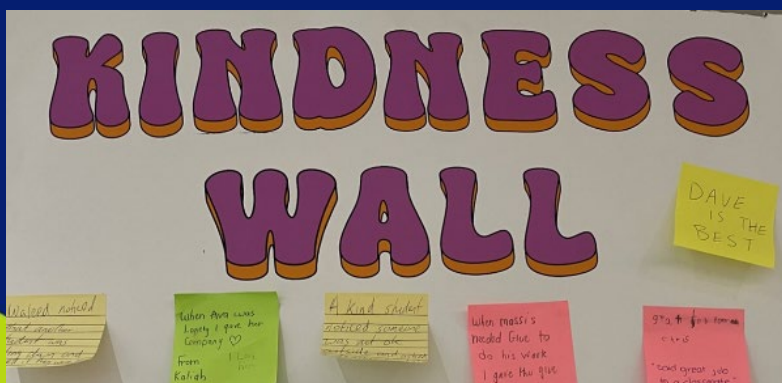 KINDNESS
WALL
DAVE
IS THE
BEST
Waleed noticed
that another
When Ava was
lonely I gave her
Company ♡
From
Kaliah
A Kind student
noticed someone
was not ok
When massis
needed Glue to
do his work
I gave the glue
"said great job
to a classmate"